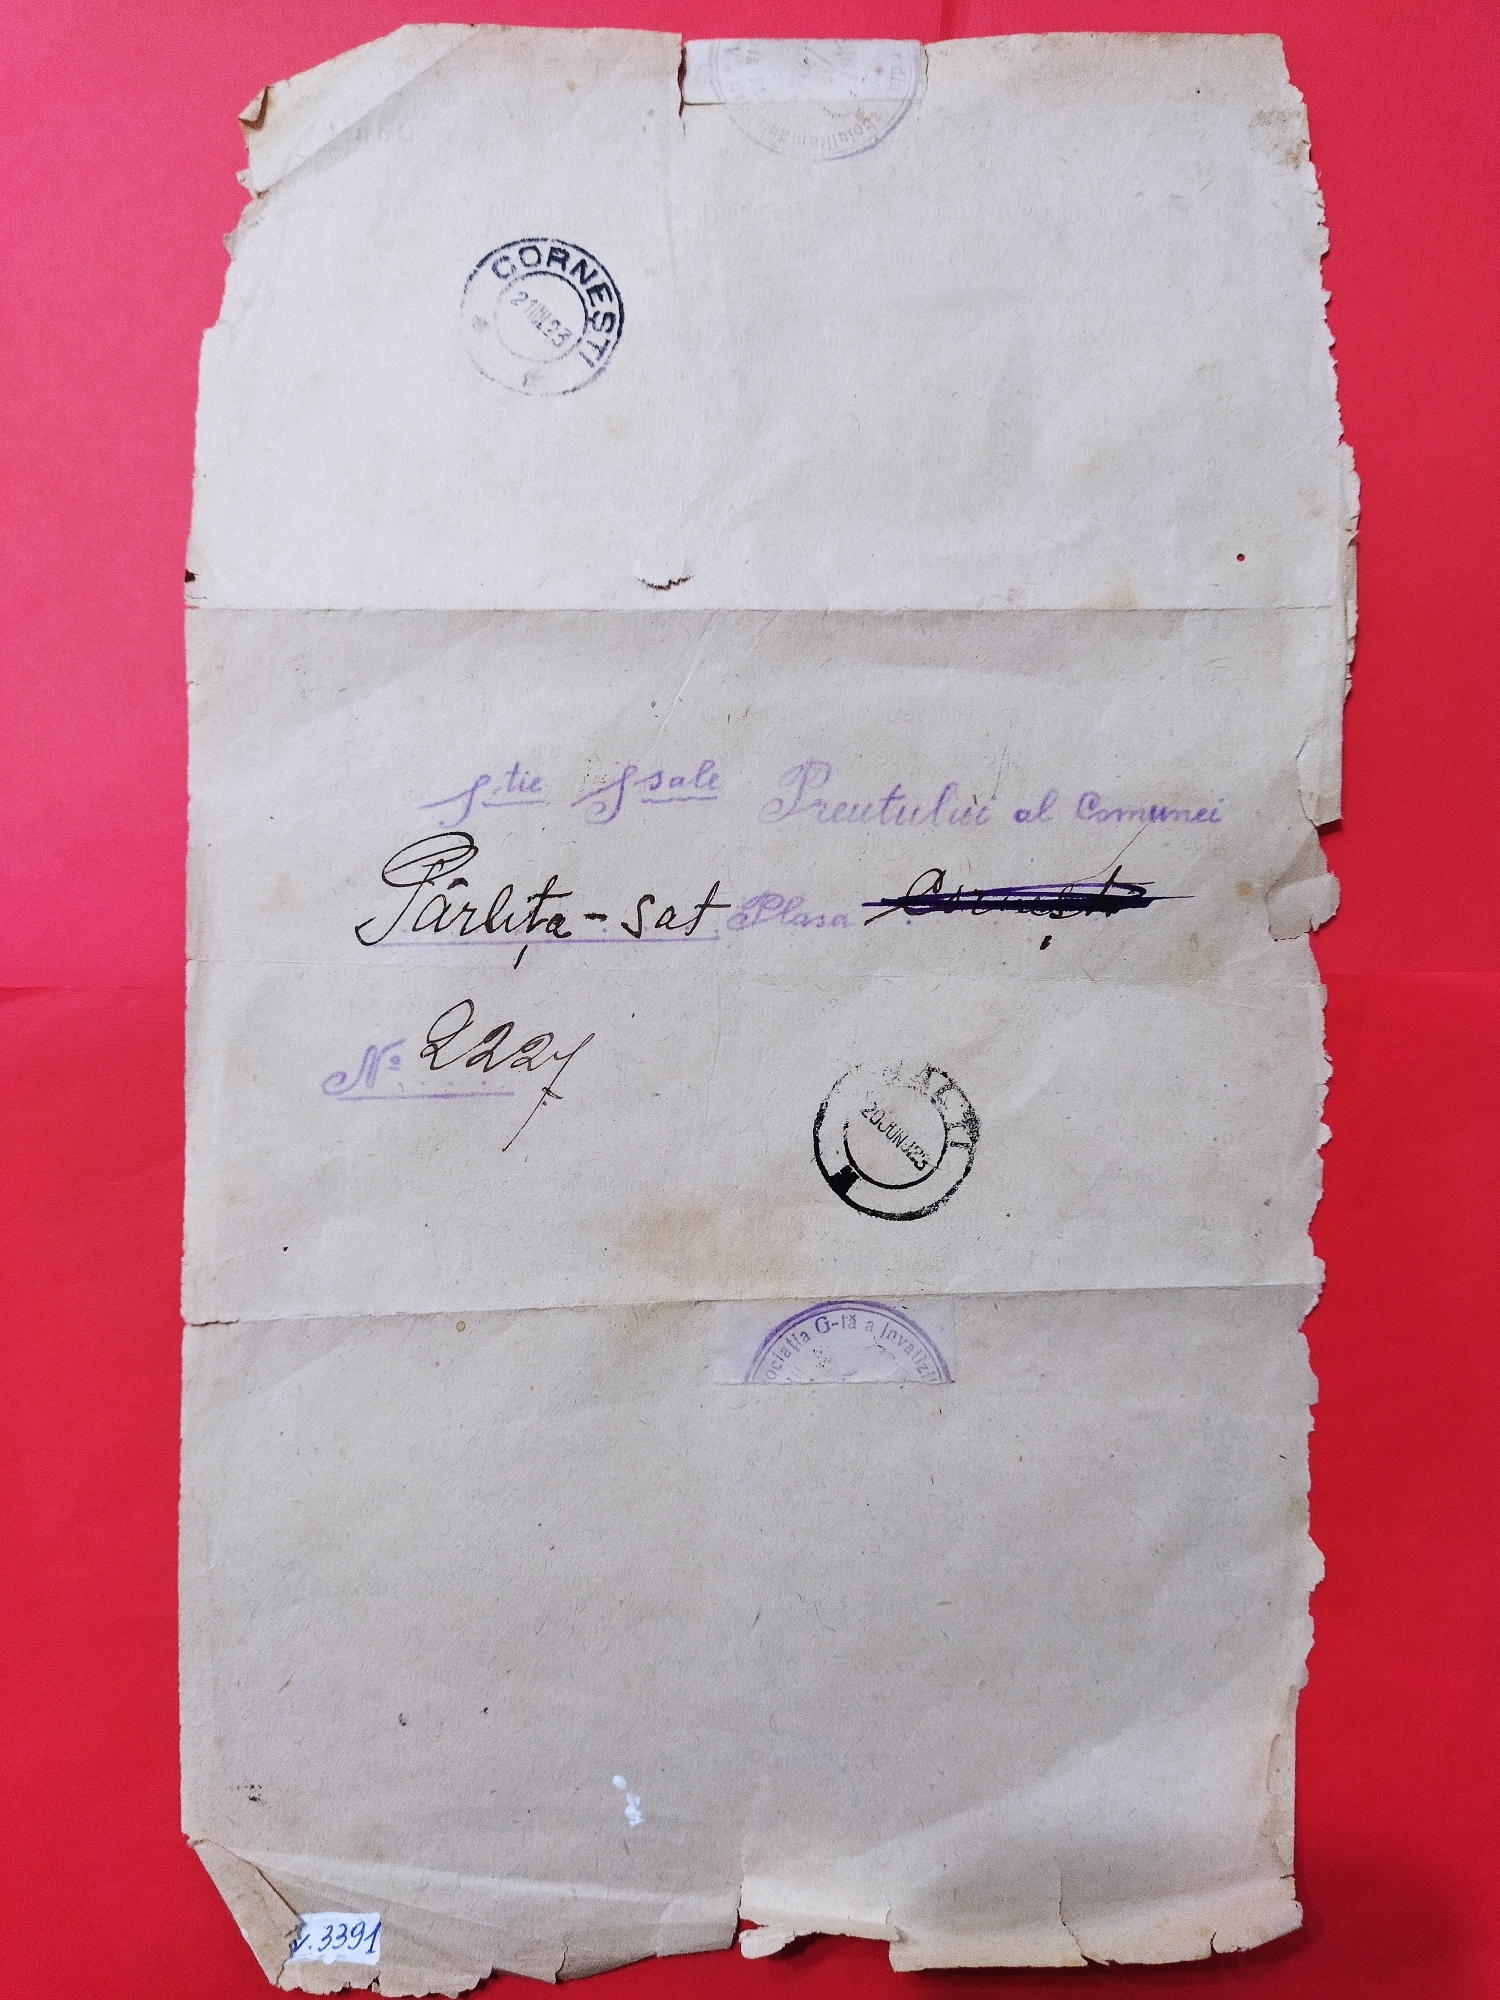 CORNEȘTI
21 IUN.23
S.tie Ssale Preutului al Comunei
Pârlița-sat Plasa Cornești
No 2227
20 JUN.923
ociația G-lă a Invalizil
v.3391